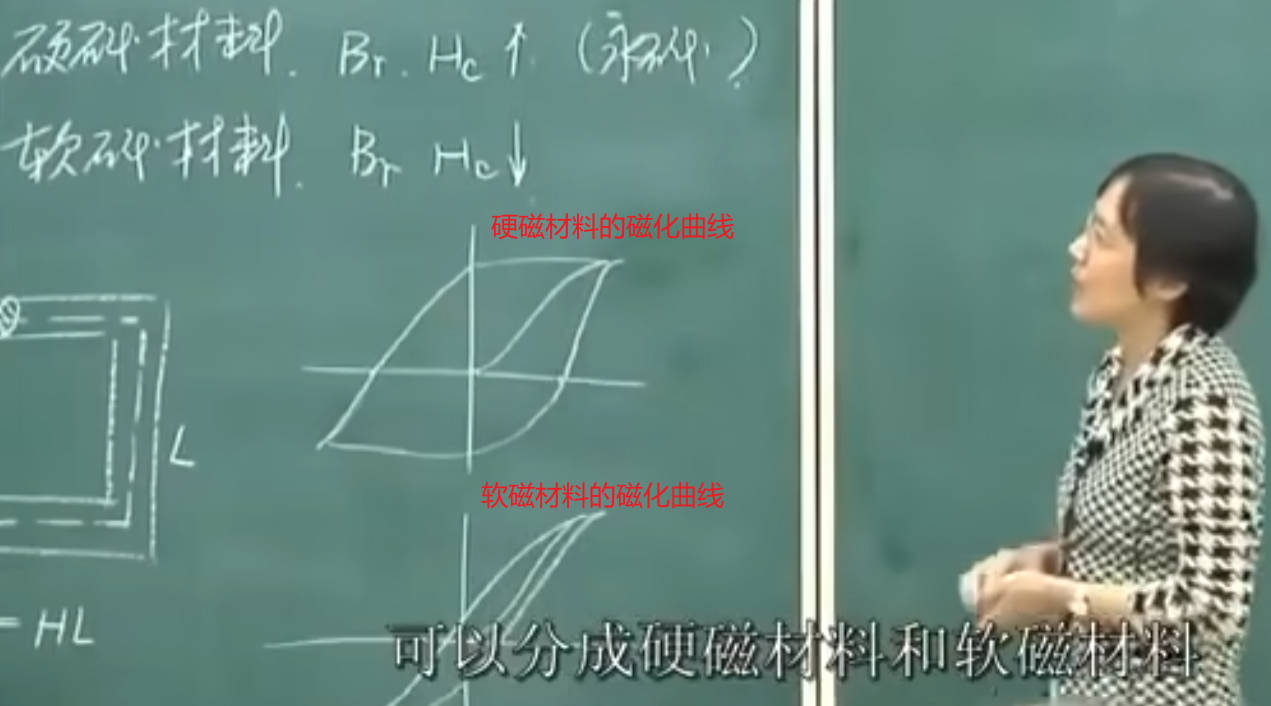 硬磁材料. Br. Hc ↑ (永磁.)
软磁材料. Br Hc ↓
硬磁材料的磁化曲线
L
软磁材料的磁化曲线
= HL
可以分成硬磁材料和软磁材料